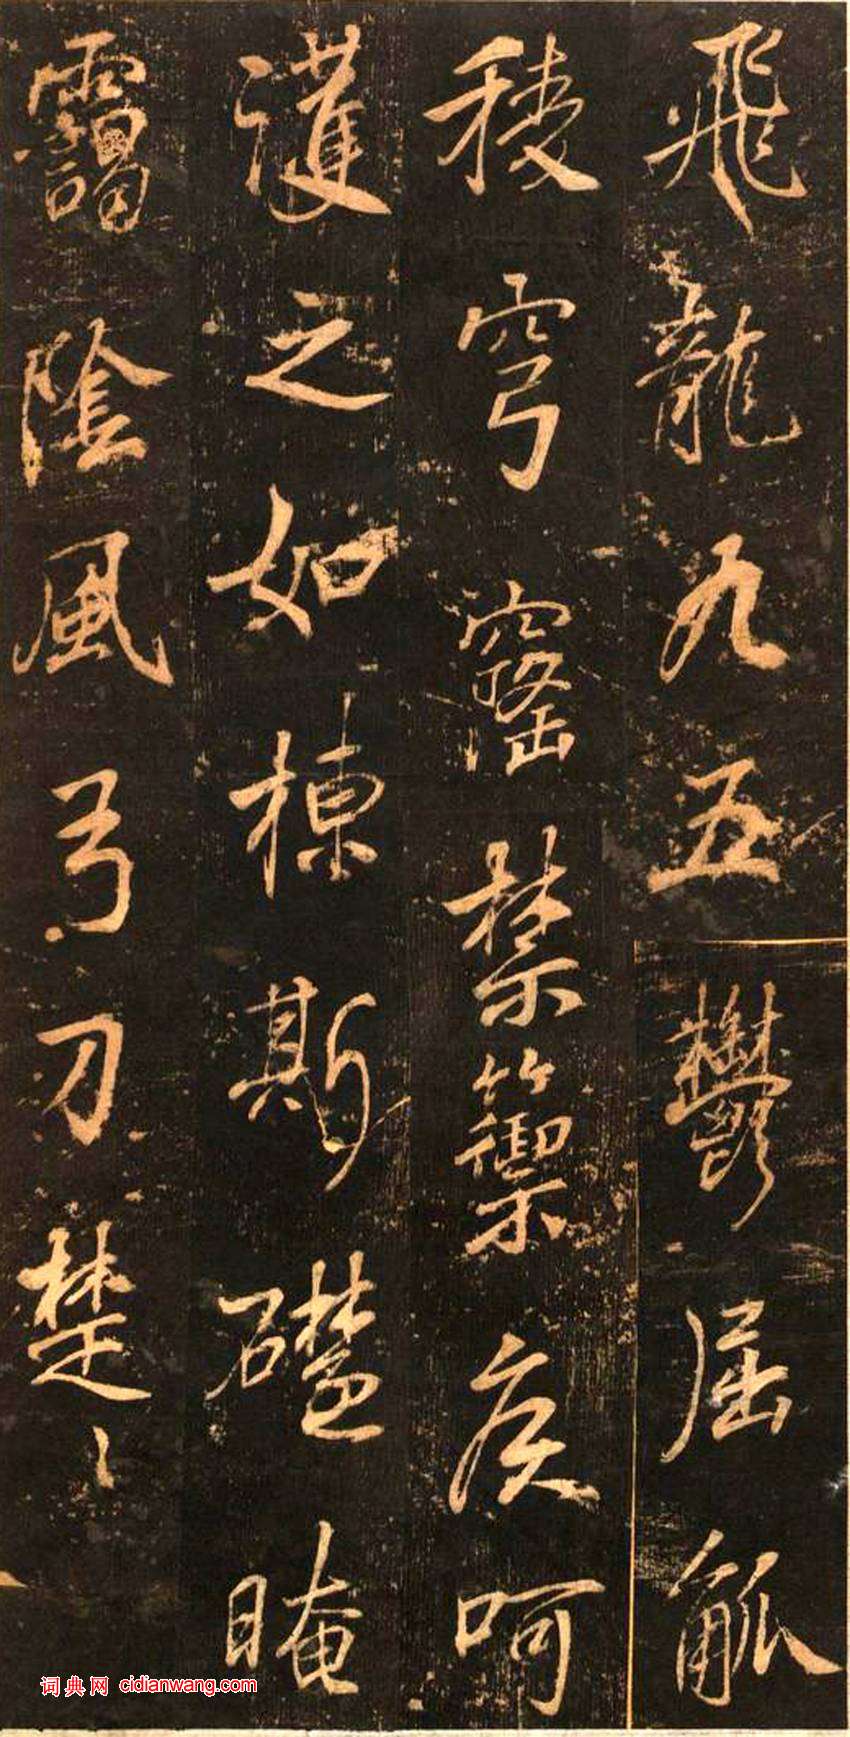 飛龍九五鬱屈觚
稜穹窿禁篽矦呵
護之如棟斯礎晻
靄陰風弓刀楚〻
词典网 cidianwang.com